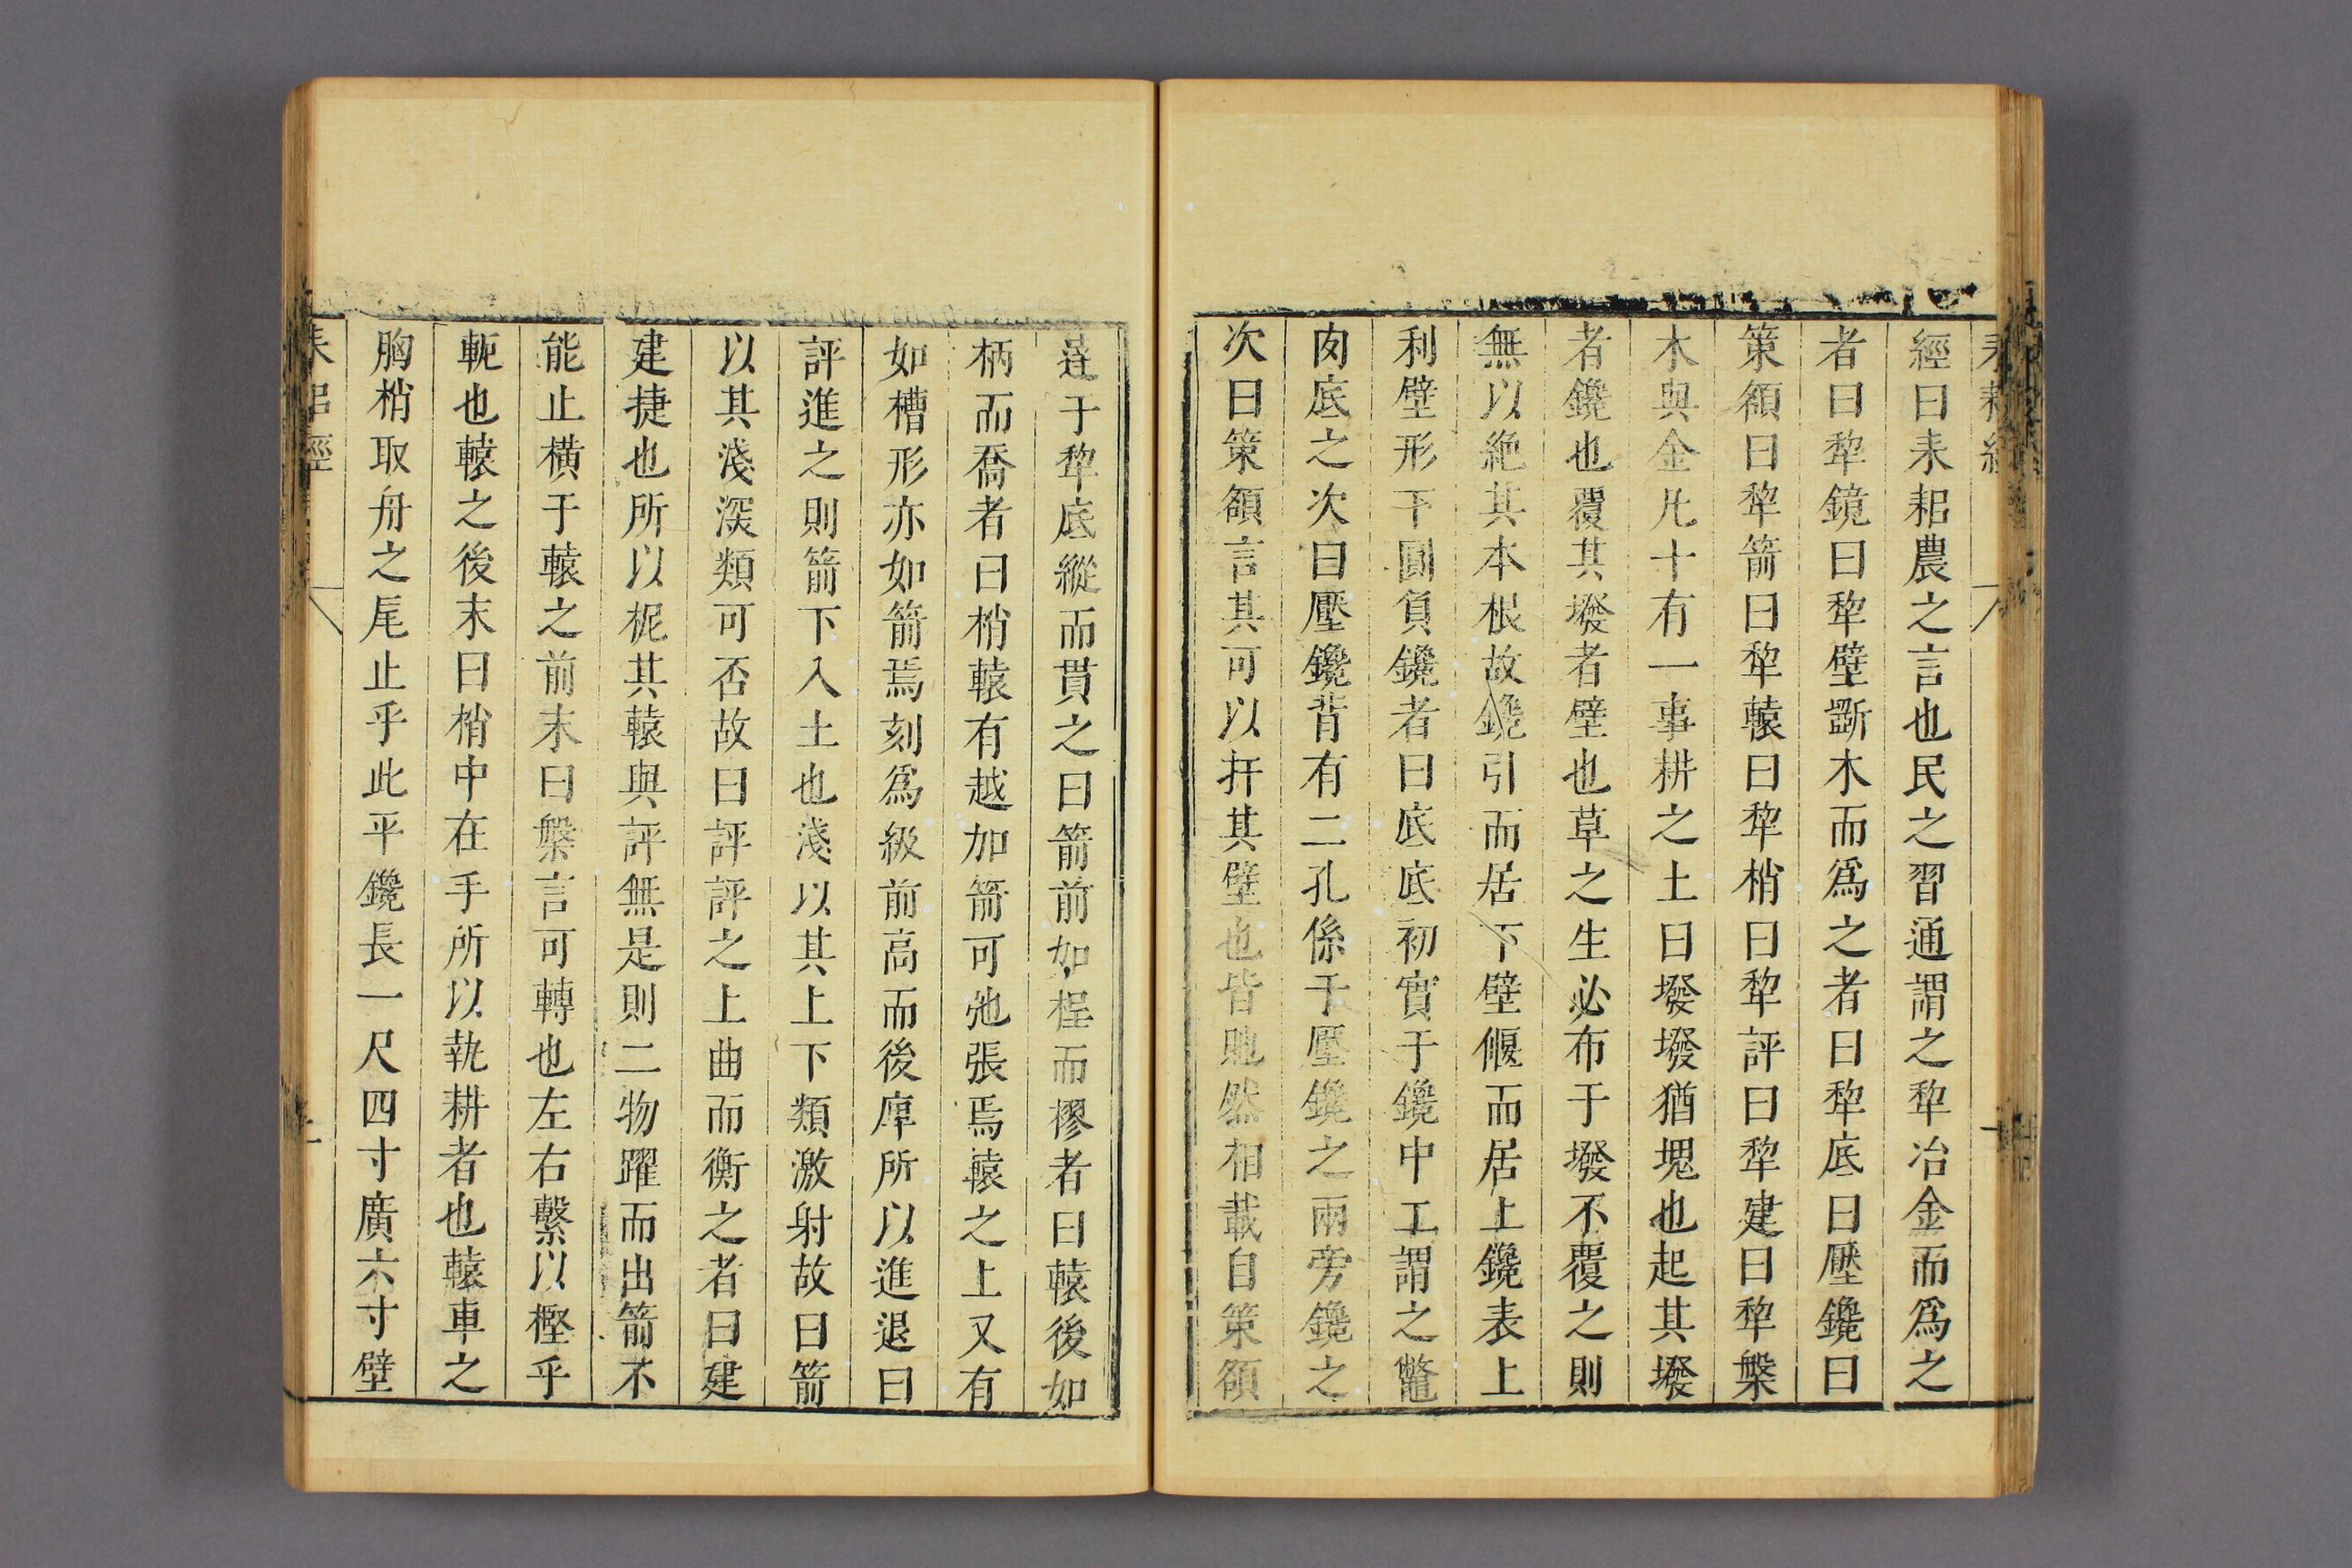 經曰耒耜農之言也民之習通謂之犂冶金而爲之
者曰犂鏡曰犂壁斵木而爲之者曰犂底曰壓鑱曰
策額曰犂箭曰犂轅曰犂梢曰犂評曰犂建曰犂槃
木與金凡十有一事耕之土曰墢墢猶塊也起其墢
者鑱也覆其墢者壁也草之生必布于墢不覆之則
無以絶其本根故鑱引而居下壁偃而居上鑱表上
利壁形下圓負鑱者曰底底初實于鑱中工謂之鼈
肉底之次曰壓鑱背有二孔係于壓鑱之兩旁鑱之
次曰策額言其可以扞其壁也皆貤然相載自策額
達于犂底縱而貫之曰箭前如桯而樛者曰轅後如
柄而喬者曰梢轅有越加箭可弛張焉轅之上又有
如槽形亦如箭焉刻爲級前高而後庳所以進退曰
評進之則箭下入土也淺以其上下類激射故曰箭
以其淺深類可否故曰評評之上曲而衡之者曰建
建揵也所以柅其轅與評無是則二物躍而出箭不
能止橫于轅之前末曰槃言可轉也左右繫以樫乎
軛也轅之後末曰梢中在手所以執耕者也轅車之
胸梢取舟之尾止乎此乎鑱長一尺四寸廣六寸壁
耒耜經